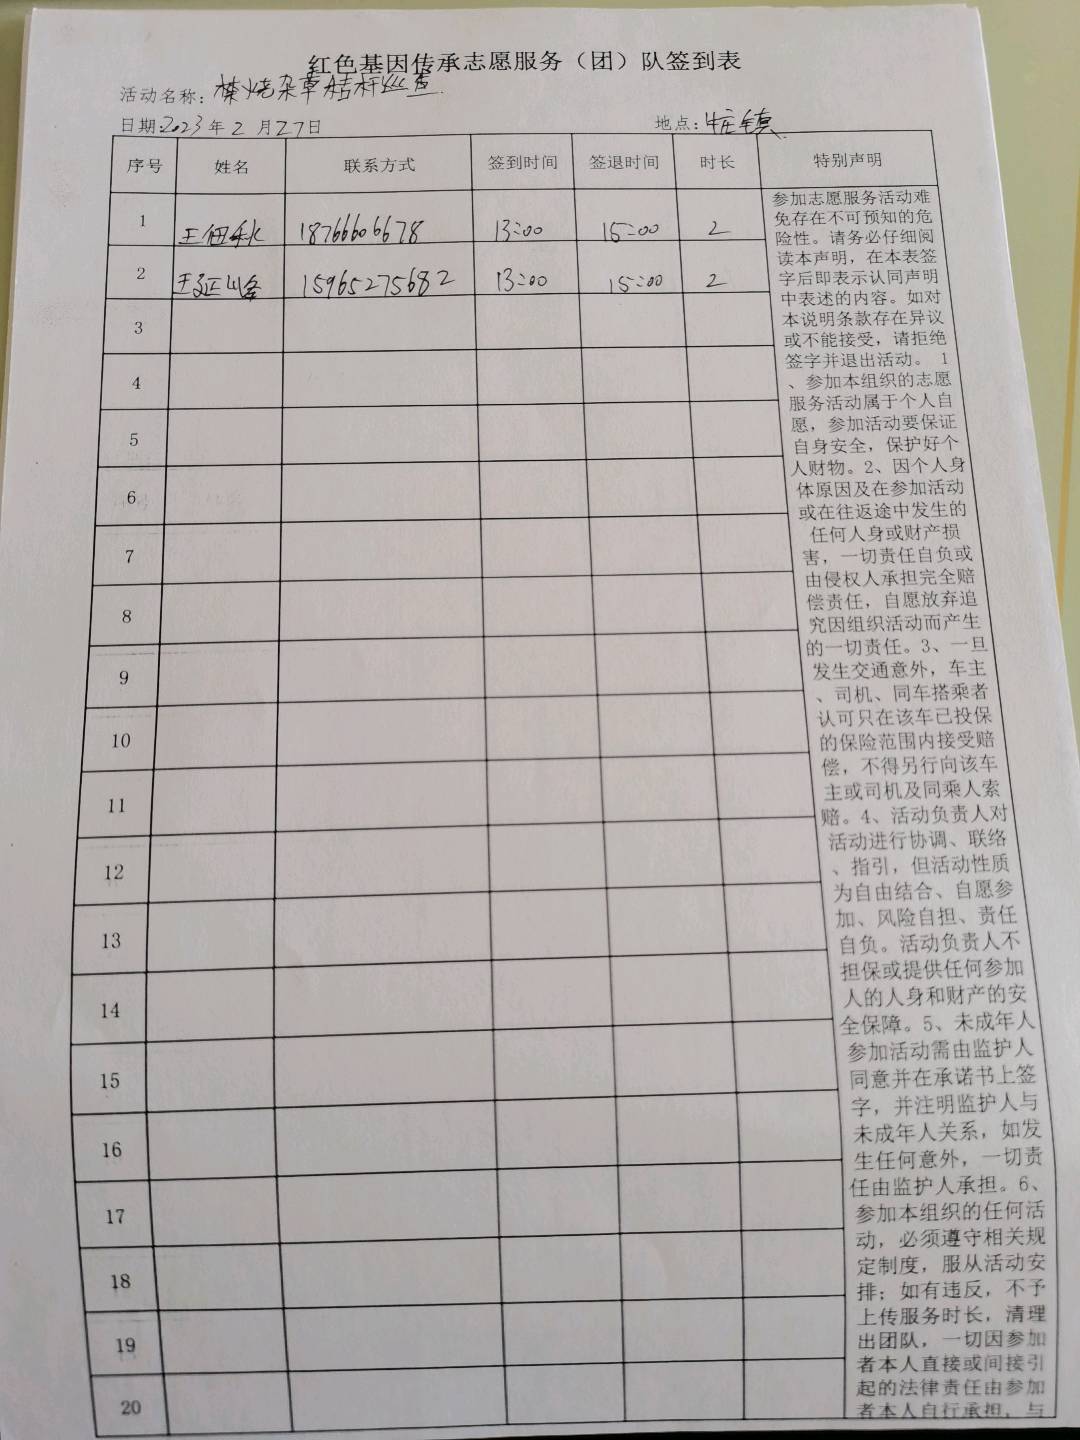 红色基因传承志愿服务（团）队签到表
活动名称：焚烧杂草秸秆巡查
日期:2023年2月27日 地点:牛庄镇
序号 姓名 联系方式 签到时间 签退时间 时长 特别声明
1 王佃永 18766606678 13:00 15:00 2
2 王延峰 15965275682 13:00 15:00 2
3
4
5
6
7
8
9
10
11
12
13
14
15
16
17
18
19
20
参加志愿服务活动难
免存在不可预知的危
险性。请务必仔细阅
读本声明，在本表签
字后即表示认同声明
中表述的内容。如对
本说明条款存在异议
或不能接受，请拒绝
签字并退出活动。 1
、参加本组织的志愿
服务活动属于个人自
愿，参加活动要保证
自身安全，保护好个
人财物。2、因个人身
体原因及在参加活动
或在往返途中发生的
任何人身或财产损
害，一切责任自负或
由侵权人承担完全赔
偿责任，自愿放弃追
究因组织活动而产生
的一切责任。3、一旦
发生交通意外，车主
、司机、同车搭乘者
认可只在该车已投保
的保险范围内接受赔
偿，不得另行向该车
主或司机及同乘人索
赔。4、活动负责人对
活动进行协调、联络
、指引，但活动性质
为自由结合、自愿参
加、风险自担、责任
自负。活动负责人不
担保或提供任何参加
人的人身和财产的安
全保障。5、未成年人
参加活动需由监护人
同意并在承诺书上签
字，并注明监护人与
未成年人关系，如发
生任何意外，一切责
任由监护人承担。6、
参加本组织的任何活
动，必须遵守相关规
定制度，服从活动安
排；如有违反，不予
上传服务时长，清理
出团队，一切因参加
者本人直接或间接引
起的法律责任由参加
者本人自行承担，与